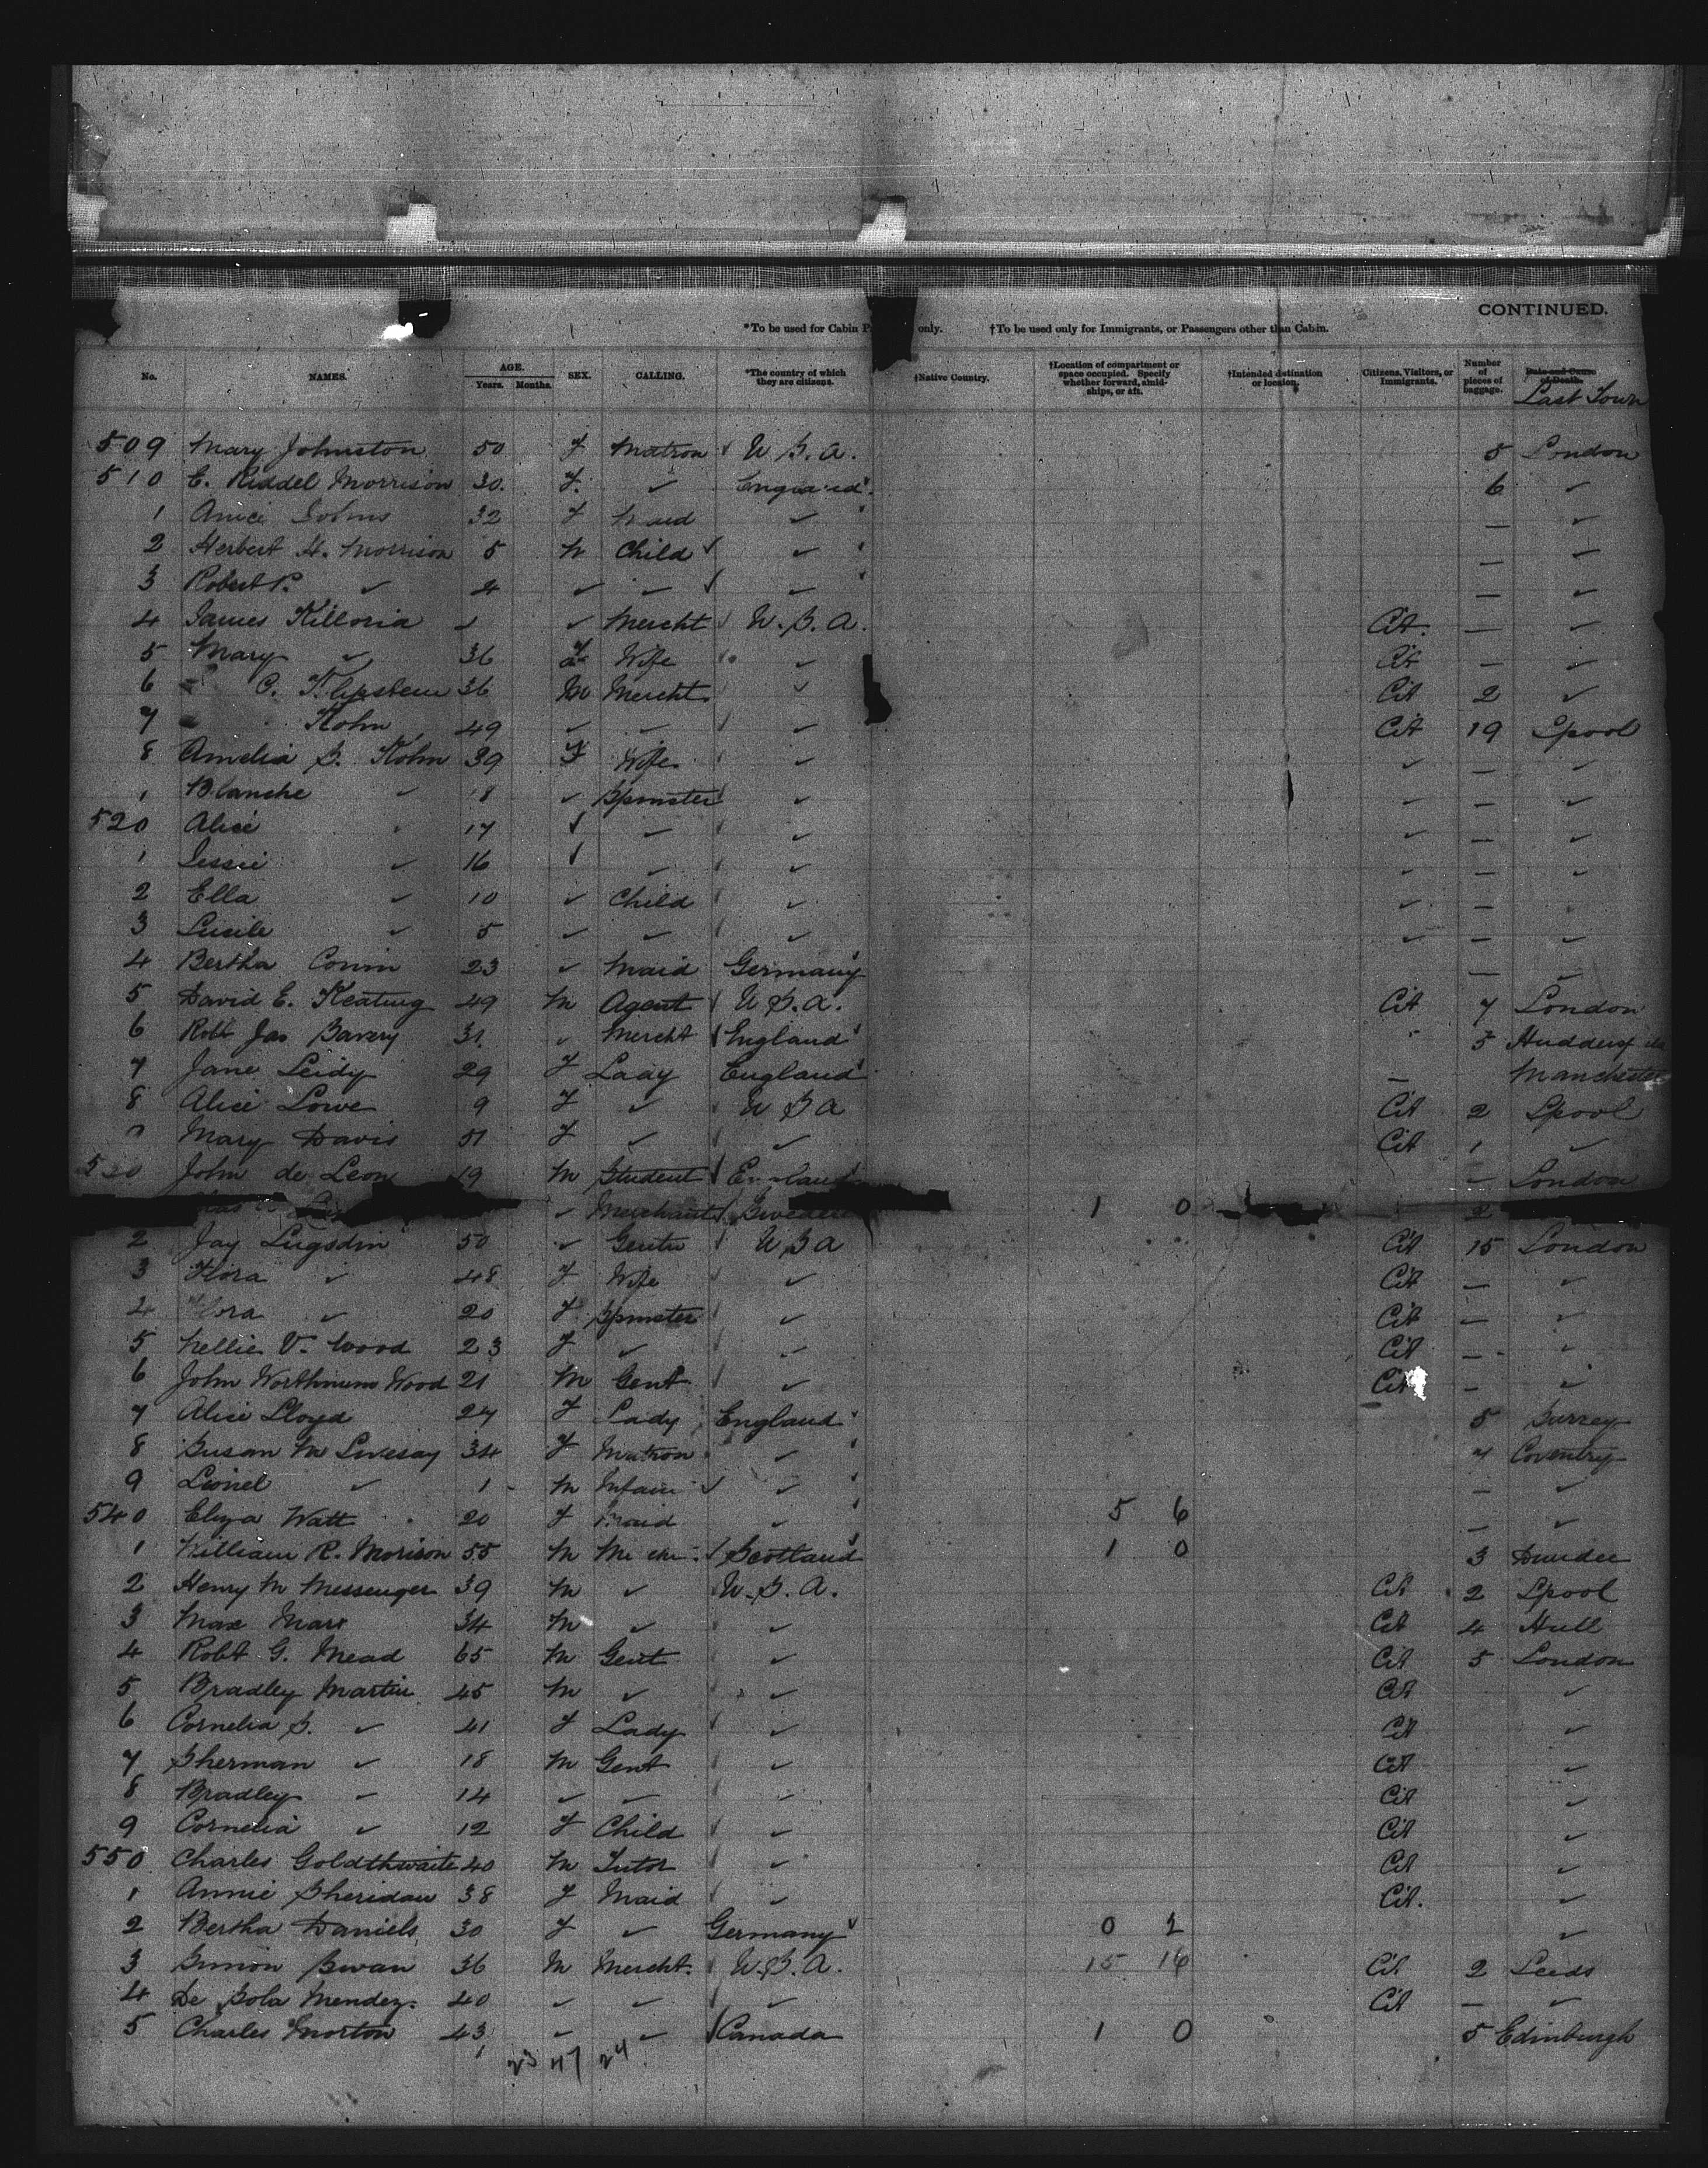 CONTINUED.
*To be used for Cabin P only. †To be used only for Immigrants, or Passengers other than Cabin.
No. NAMES. AGE. Years. Months. SEX. CALLING. *The country of which they are citizens. †Native Country. †Location of compartment or space occupied. Specify whether forward, amidships, or aft. †Intended distination or location. Citizens, Visitors, or Immigrants. Number of pieces of baggage. Date and Cause of Death. Last Town
509 Mary Johnston 50 F Matron ✓ U.S.A. 5 London
510 E. Riddel Morrison 30. F. ✓ 6 ✓
1 32 F Maid ✓ — ✓
2 Herbert H. Morrison 5 M Child ✓ ✓ — ✓
3 Robert P. ✓ 4 ✓ ✓ ✓ ✓ — ✓
4 James Killoria ✓ ✓ Mercht U.S.A. Cit. — ✓
5 Mary ✓ 36 F Wife ✓ Cit — ✓
6 C. Klipstein 36 M Mercht ✓ Cit 2 ✓
7 Kohn 49 ✓ ✓ ✓ Cit 19 Lpool
8 Amelia S. Kohn 39 F Wife ✓ ✓ — ✓
Blanche ✓ 18 ✓ Spinster ✓ ✓ — ✓
520 Alice 17 ✓ ✓ ✓ ✓ — ✓
1 Jessie ✓ 16 ✓ ✓ ✓ ✓ — ✓
2 Ella ✓ 10 ✓ Child ✓ ✓ —
3 Lucile ✓ 5 ✓ ✓ ✓ ✓ — ✓
4 Bertha 23 ✓ Maid Germany — ✓
5 David E. Keating 49 M Agent U.S.A. Cit 7 London
6 Robt Jas Savery 31 ✓ Mercht England 5
7 Jane Leidy 29 F Lady England — Manchester
8 Alice Lowe 9 F ✓ U S A Cit 2 Lpool
Mary Davis 51 F ✓ ✓ Cit 1 ✓
John de Leon 19 M Student London
✓ Merchant Sweden 1 0 2
2 Jay Lugsdin 50 ✓ U S A Cit 15 London
3 Flora ✓ 48 F Wife ✓ Cit — ✓
4 ✓ 20 F Spinster ✓ Cit — ✓
5 Nellie V. Wood 23 F ✓ ✓ Cit — ✓
6 John Wood 21 M Gent ✓ Cit — ✓
7 Alice Lloyd 27 F Lady England 5 Surrey
8 Susan M Livesay 34 F Matron ✓ 7 Coventry
9 Lionel ✓ 1 M ✓ ✓ — ✓
540 Eliza Watt 20 F Maid ✓ 5 6 — ✓
1 William R. Morison 55 M Scotland 1 0 3 Dundee
2 Henry M Messenger 39 M ✓ U.S.A. Cit 2 Lpool
3 Max Marx 34 M ✓ ✓ Cit 4 Hull
4 Robt G. Mead 65 M Gent ✓ Cit 5 London
5 Bradley Martin 45 M ✓ ✓ Cit ✓
6 Cornelia S. ✓ 41 F Lady ✓ Cit ✓
7 Sherman ✓ 18 M Gent ✓ Cit ✓
8 Bradley ✓ 14 ✓ ✓ ✓ Cit ✓
9 Cornelia ✓ 12 F Child ✓ Cit ✓
550 Charles Goldthwaite 40 M Tutor ✓ Cit ✓
1 Annie Sheridan 38 F Maid ✓ Cit. ✓
2 Bertha Daniels 30 F ✓ Germany 0 2 ✓
3 Simon Swan 36 M Mercht. U.S.A. 15 16 Cit 2 Leeds
4 De Sola Mendez. 40 ✓ ✓ ✓ Cit — ✓
5 Charles Morton 43 ✓ ✓ Canada 1 0 5 Edinburgh
23 47 24